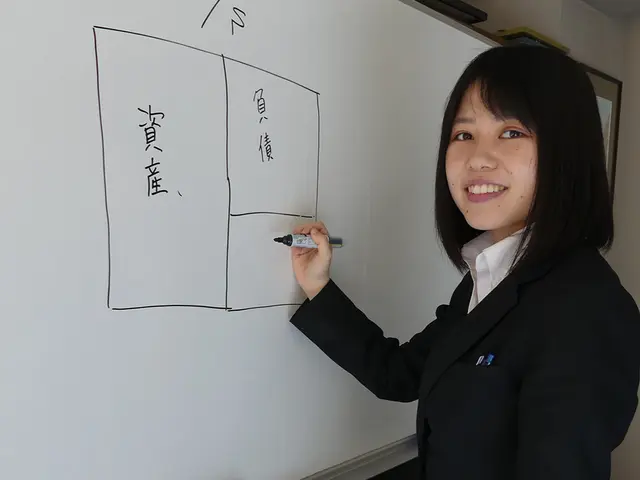 /S
資産、
負債